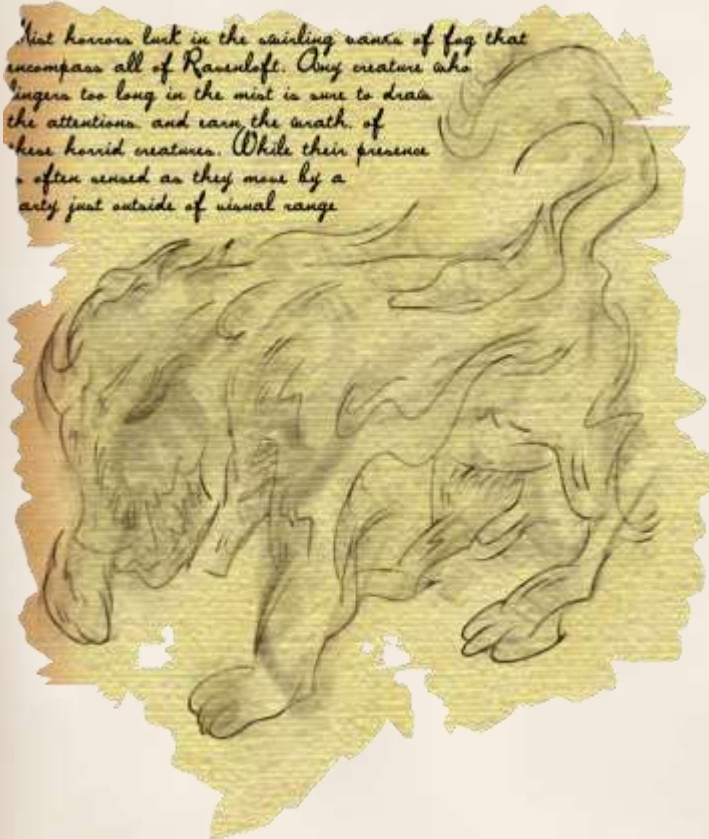 Mist horrors lurk in the swirling vanks of fog that
encompass all of Ravenloft. Any creature who
lingers too long in the mist is sure to draw
the attentions, and earn the wrath, of
these horrid creatures. While their presence
is often sensed as they move by a
party just outside of visual range